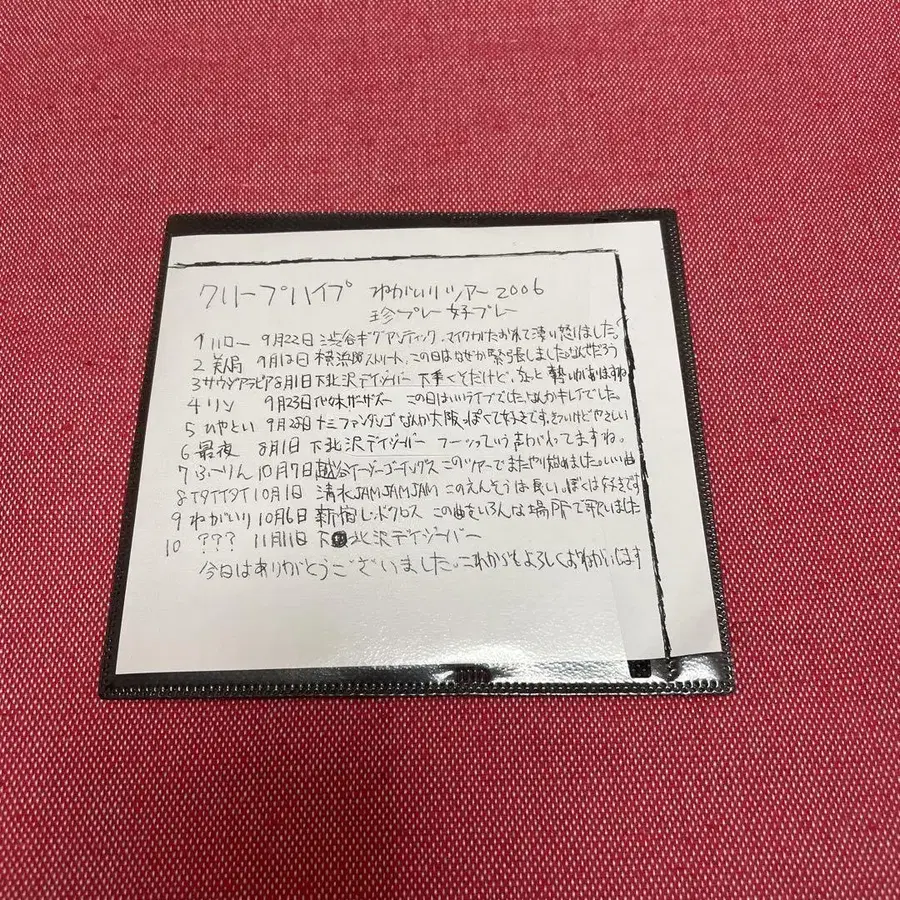 クリープハイプ ねがいりツアー2006
珍プレー好プレー
1 ハロー 9月22日 渋谷ギグアンティック、マイクがたおれて凄い怒りました。
2 美局 9月12日 横浜 ストリート、この日はなぜか緊張しました。なんでだろう
3 サウジアラビア 8月1日 下北沢デイジーバー 下手くそだけど、ちょっと勢いがありますね
4 リン 9月23日 代々木ザーザズー この日はいいライブでした。なんかキレイでした。
5 ひやとい 9月28日 十三ファンダンゴ なんか大阪っぽくて好きです。そういけどやさしい
6 最夜 8月1日 下北沢デイジーバー フーンっていうまがわってますね。
7 ふーりん 10月7日 越谷イージーゴーイングス このツアーでまたやり始めました。いい曲
8 タイタイタイ 10月1日 清水JAMJAMJAM このえんそうは長い。ぼくは好きです
9 ねがいり 10月6日 新宿Lドボクロス この曲をいろんな場所で歌いました
10 ??? 11月11日 下北沢デイジーバー
今日はありがとうございました。これからもよろしくおねがいします